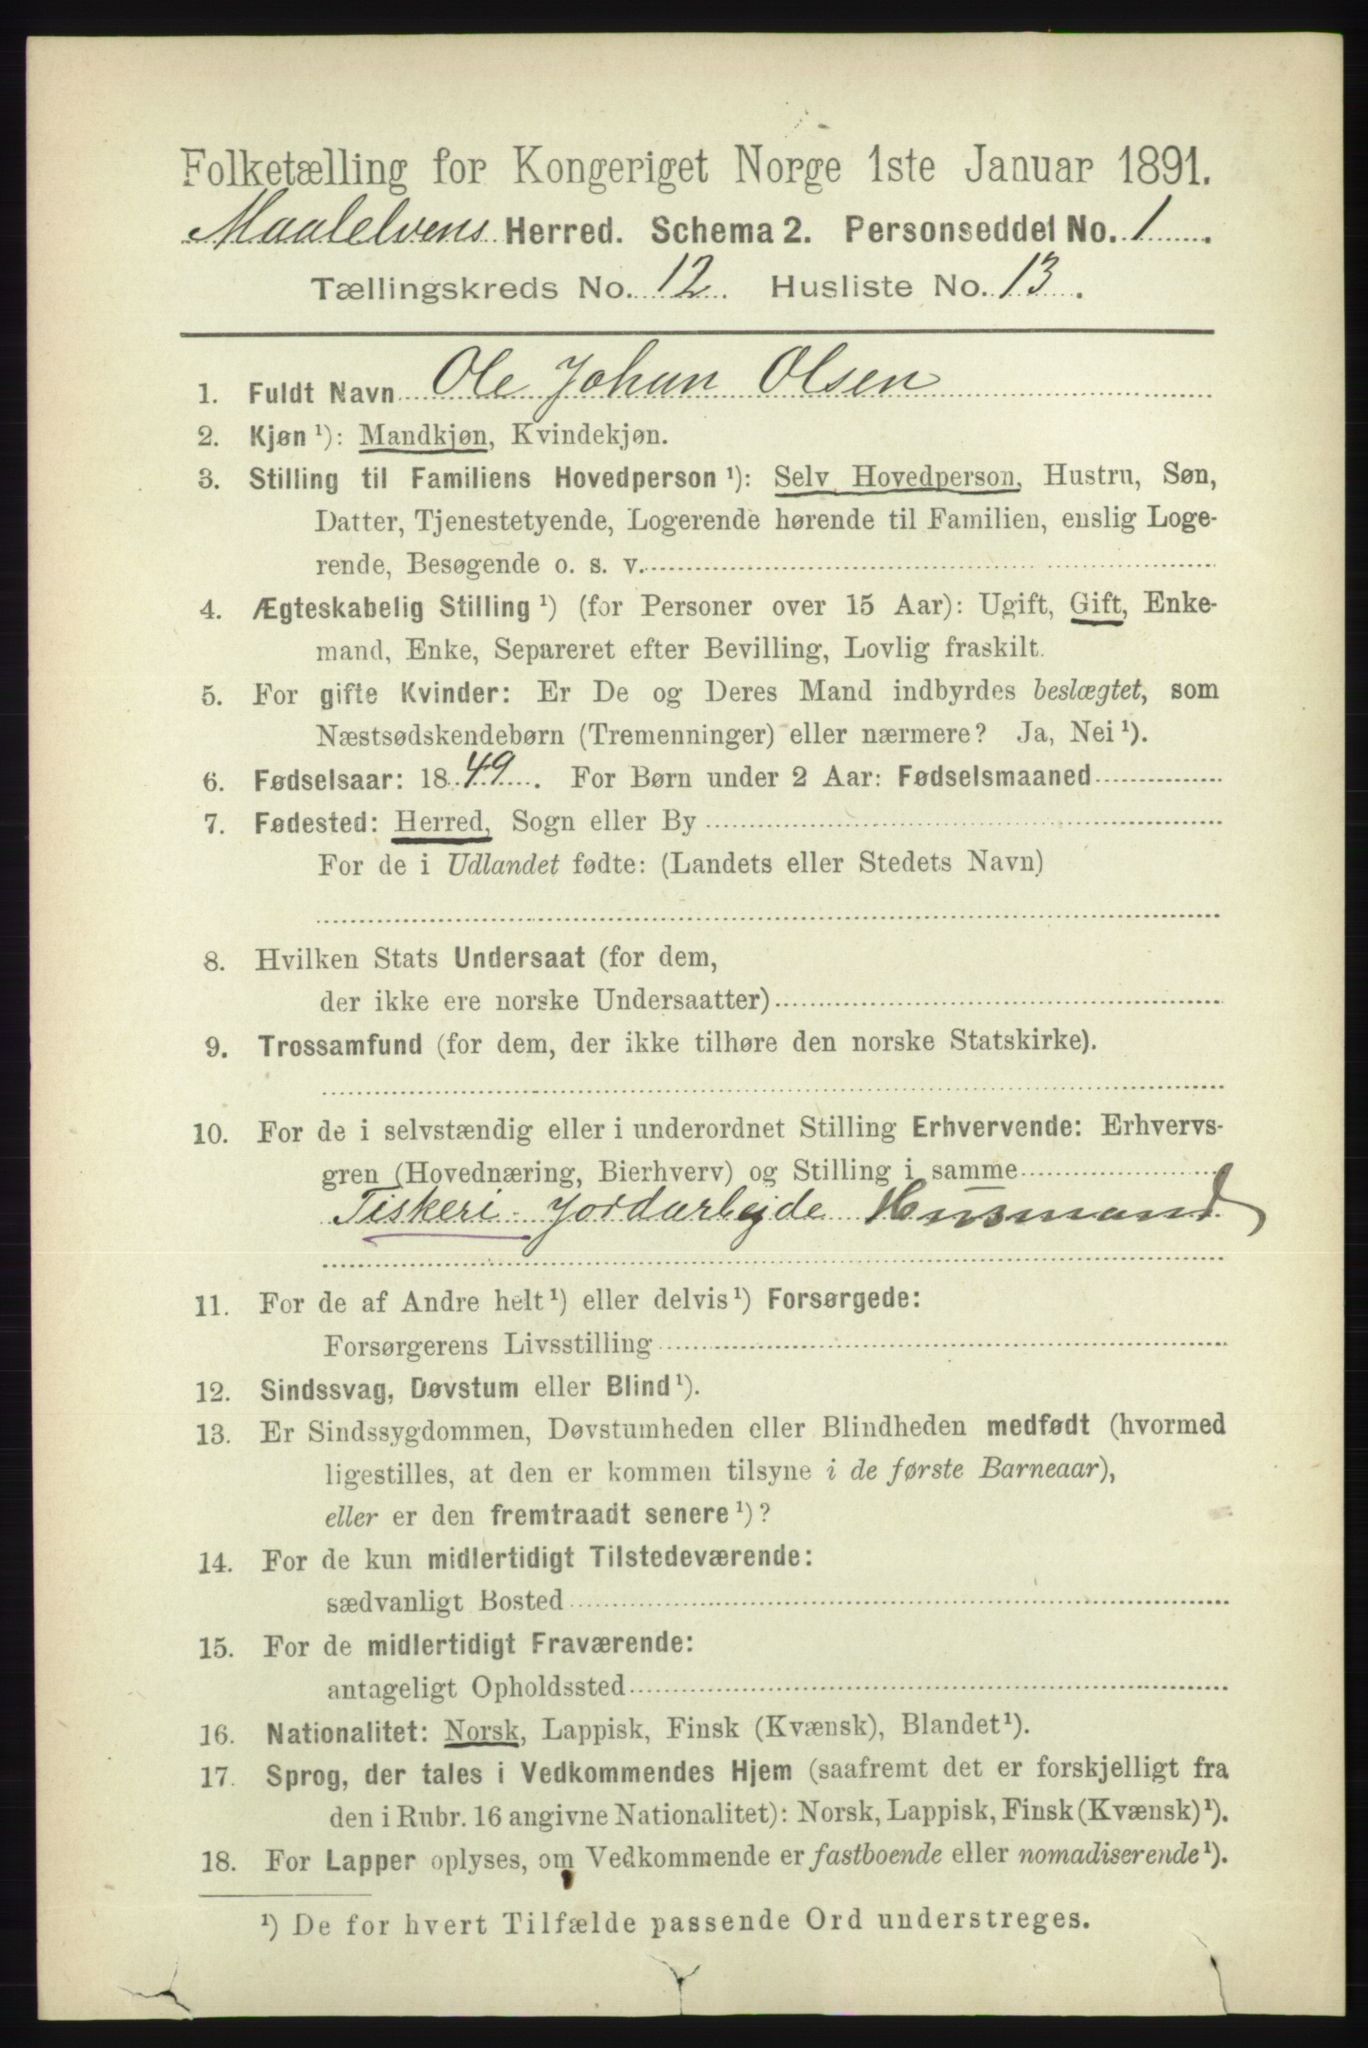 Folketælling for Kongeriget Norge 1ste Januar 1891.
Maalelvens Herred. Schema 2. Personseddel No. 1.
Tællingskreds No. 12. Husliste No. 13.
1. Fuldt Navn Ole Johan Olsen
2. Kjøn ¹): Mandkjøn, Kvindekjøn.
3. Stilling til Familiens Hovedperson ¹): Selv Hovedperson, Hustru, Søn,
Datter, Tjenestetyende, Logerende hørende til Familien, enslig Loge-
rende, Besøgende o. s. v.
4. Ægteskabelig Stilling ¹) (for Personer over 15 Aar): Ugift, Gift, Enke-
mand, Enke, Separeret efter Bevilling, Lovlig fraskilt.
5. For gifte Kvinder: Er De og Deres Mand indbyrdes beslægtet, som
Næstsødskendebørn (Tremenninger) eller nærmere? Ja, Nei ¹).
6. Fødselsaar: 1849. For Børn under 2 Aar: Fødselsmaaned
7. Fødested: Herred, Sogn eller By
For de i Udlandet fødte: (Landets eller Stedets Navn)
8. Hvilken Stats Undersaat (for dem,
der ikke ere norske Undersaatter)
9. Trossamfund (for dem, der ikke tilhøre den norske Statskirke).
10. For de i selvstændig eller i underordnet Stilling Erhvervende: Erhvervs-
gren (Hovednæring, Bierhverv) og Stilling i samme
Fiskeri - Jordarbejde Husmand
11. For de af Andre helt ¹) eller delvis ¹) Forsørgede:
Forsørgerens Livsstilling
12. Sindssvag, Døvstum eller Blind ¹).
13. Er Sindssygdommen, Døvstumheden eller Blindheden medfødt (hvormed
ligestilles, at den er kommen tilsyne i de første Barneaar),
eller er den fremtraadt senere ¹)?
14. For de kun midlertidigt Tilstedeværende:
sædvanligt Bosted
15. For de midlertidigt Fraværende:
antageligt Opholdssted
16. Nationalitet: Norsk, Lappisk, Finsk (Kvænsk), Blandet ¹).
17. Sprog, der tales i Vedkommendes Hjem (saafremt det er forskjelligt fra
den i Rubr. 16 angivne Nationalitet): Norsk, Lappisk, Finsk (Kvænsk) ¹).
18. For Lapper oplyses, om Vedkommende er fastboende eller nomadiserende ¹).
¹) De for hvert Tilfælde passende Ord understreges.